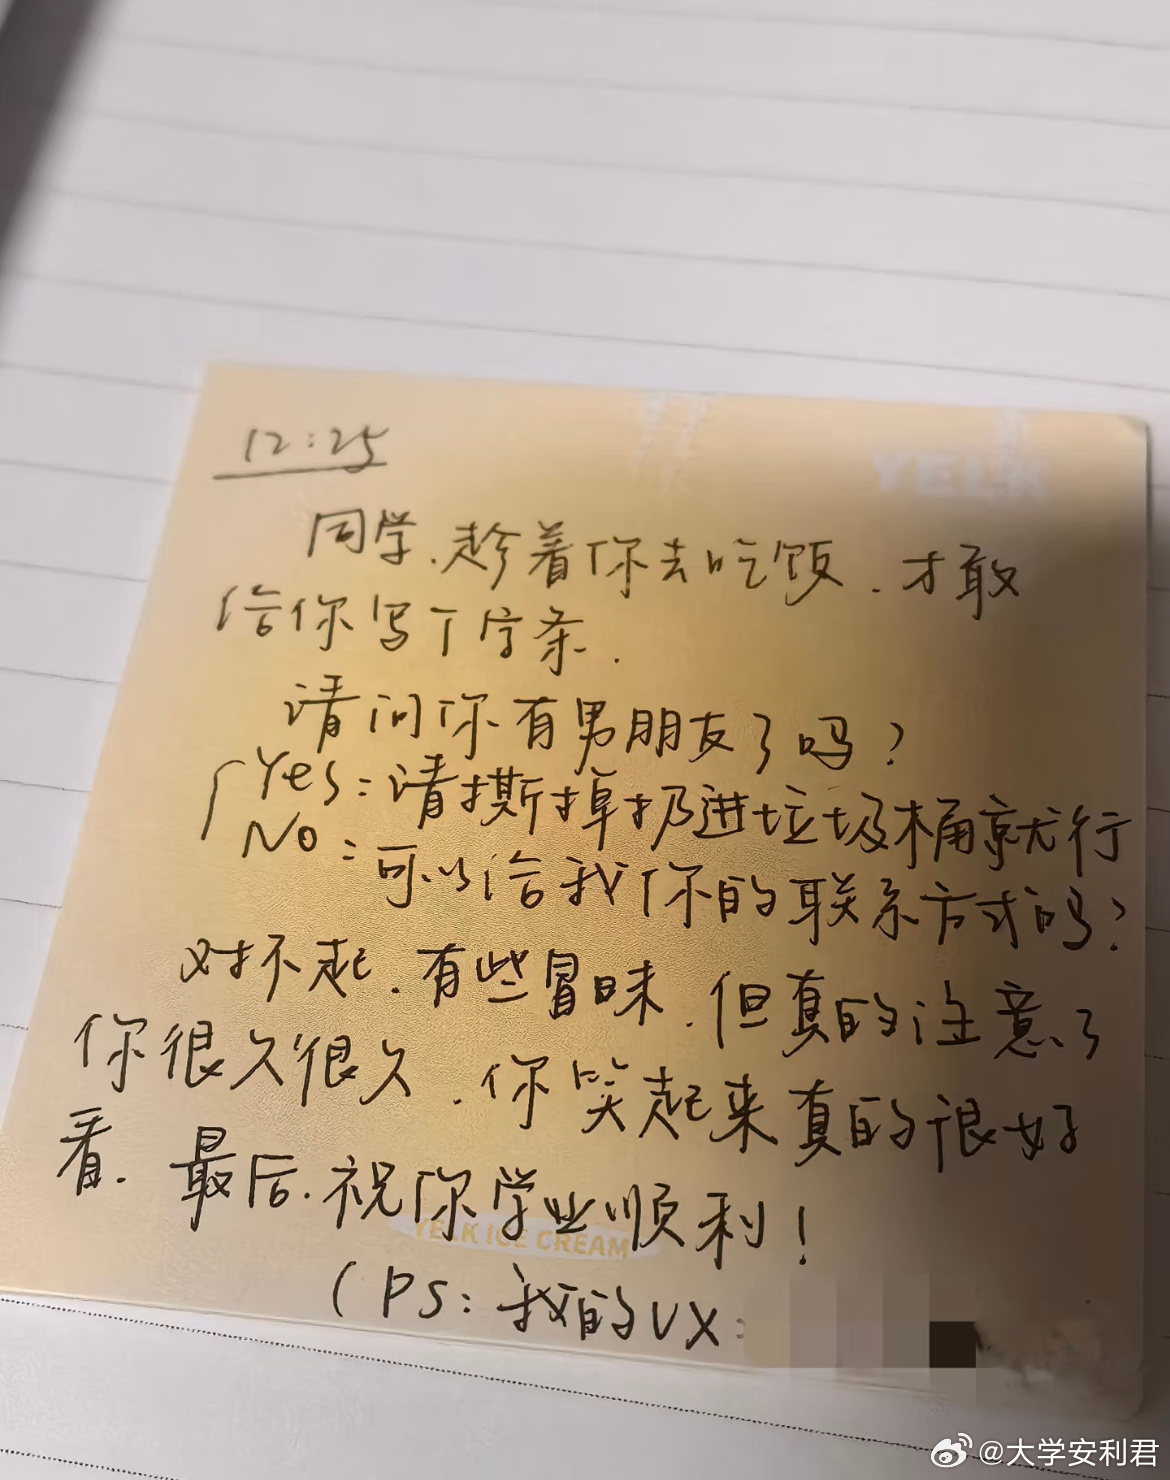 YELK
12:25
同学,趁着你去吃饭,才敢
给你写个字条.
请问你有男朋友了吗?
Yes:请撕掉扔进垃圾桶就行
No:可以给我你的联系方式吗?
对不起,有些冒昧,但真的注意了
你很久很久,你笑起来真的很好
看.最后,祝你学业顺利!
YELK ICE CREAM
(PS:我的VX:
@大学安利君